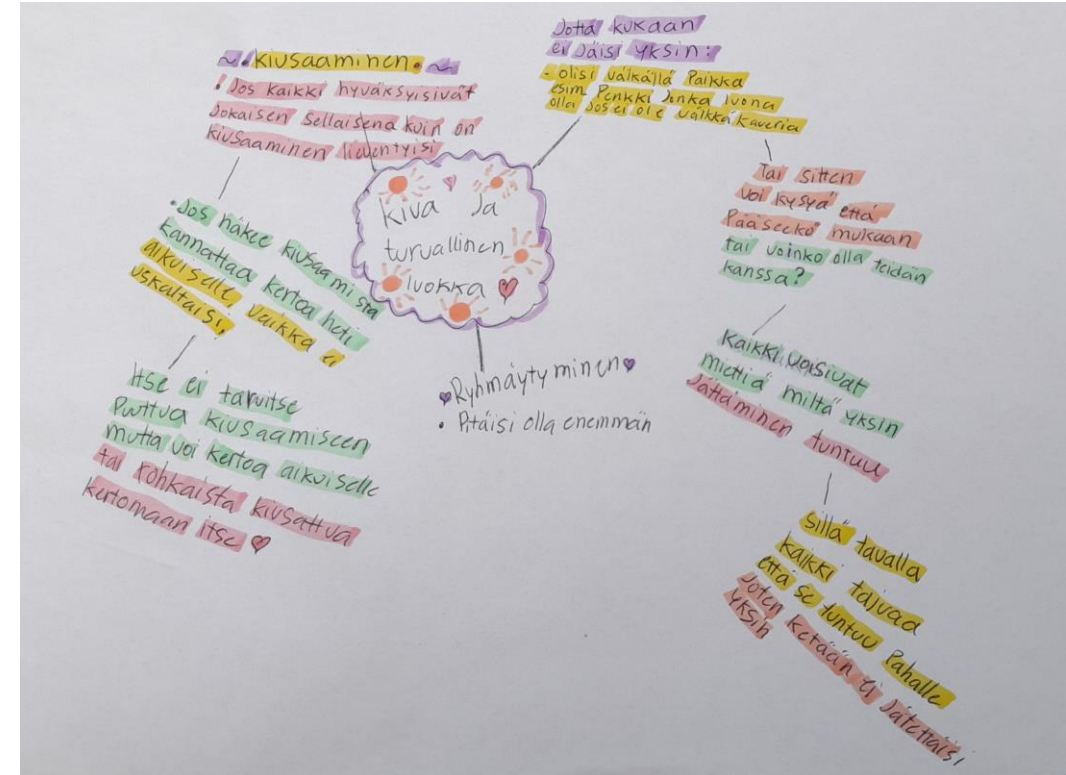 kiva Ja
turvallinen
luokka
~ • kiusaaminen • ~
! Jos kaikki hyväksyisivät
Jokaisen sellaisena kuin on
kiusaaminen lieventyisi
• Jos näkee kiusaamista
kannattaa kertoa heti
aikuiselle, vaikka ei
uskaltaisi.
Itse ei tarvitse
Puttua kiusaamiseen
mutta voi kertoa aikuiselle
tai rohkaista kiusattua
kertomaan itse ♥
Jotta kukaan
ei Jäisi yksin:
- olisi välkällä Paikka
esim Penkki Jonka luona
olla Jos ei ole välkkäkaveria
Tai sitten
voi kysyä että
Pääseekö mukaan
tai voinko olla teidän
kanssa?
Kaikki voisivat
miettiä miltä yksin
Jättäminen tuntuu
sillä tavalla
kaikki tajuaa
että se tuntuu Pahalle
Joten ketään ei Jätettäisi
yksin
♥ Ryhmäytyminen ♥
• Pitäisi olla enemmän